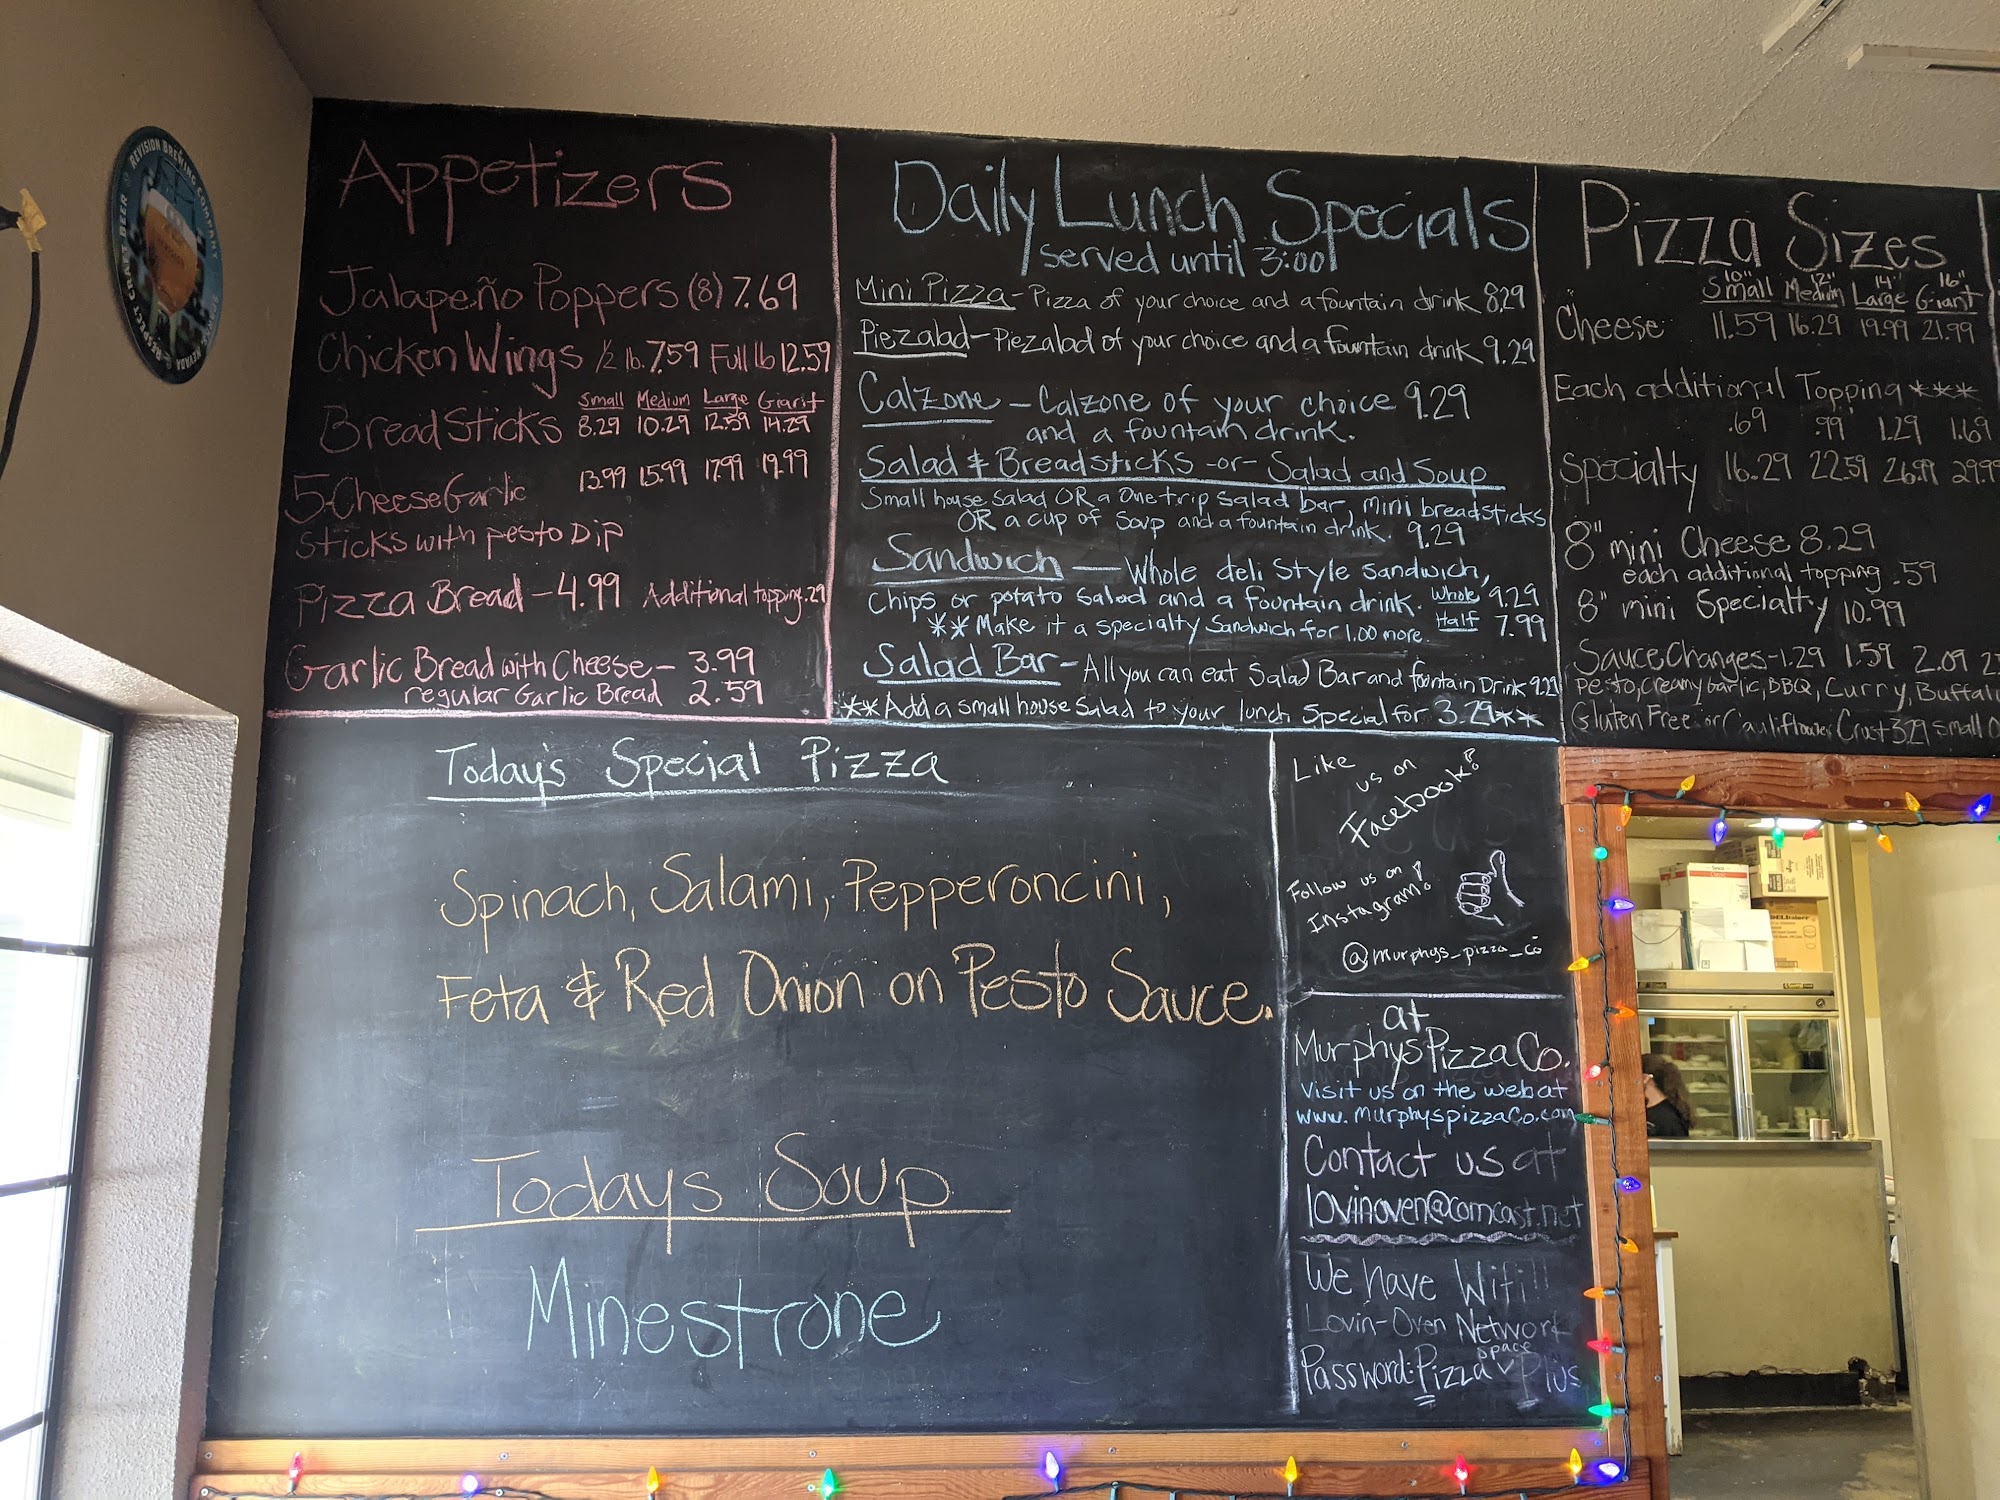 REVISION BREWING COMPANY
RESPECT CRAFT BEER
NEVADA
Appetizers
Jalapeño Poppers (8) 7.69
Chicken Wings 1/2 lb. 7.59 Full lb 12.59
Small Medium Large Giant
BreadSticks 8.29 10.29 12.59 14.29
13.99 15.99 17.99 19.99
5-Cheese Garlic
Sticks with pesto Dip
Pizza Bread - 4.99 Additional topping .29
Garlic Bread with Cheese - 3.99
regular Garlic Bread 2.59
Daily Lunch Specials
served until 3:00
Mini Pizza - Pizza of your choice and a fountain drink 8.29
Piezalad - Piezalad of your choice and a fountain drink 9.29
Calzone - Calzone of your choice 9.29
and a fountain drink.
Salad & Breadsticks -or- Salad and Soup
Small house salad OR a One trip salad bar, mini breadsticks
OR a cup of soup and a fountain drink. 9.29
Sandwich — Whole deli Style sandwich,
chips or potato salad and a fountain drink. Whole 9.29
**Make it a specialty sandwich for 1.00 more. Half 7.99
Salad Bar - All you can eat Salad Bar and fountain Drink 9.29
**Add a small house salad to your lunch special for 3.29**
Pizza Sizes
10" 12" 14" 16"
Small Medium Large Giant
Cheese 11.59 16.29 19.99 21.99
Each additional Topping ***
.69 .99 1.29 1.69
Specialty 16.29 22.59 26.99 29.99
8" mini Cheese 8.29
each additional topping .59
8" mini Specialty 10.99
Sauce Changes - 1.29 1.59 2.09
Pesto, Creamy Garlic, BBQ, Curry, Buffalo
Gluten Free or Cauliflower Crust 3.29 small
Today's Special Pizza
Spinach, Salami, Pepperoncini,
Feta & Red Onion on Pesto Sauce.
Todays Soup
Minestrone
Like
us on
Facebook!
Follow us on
Instagram!
@murphys_pizza_co
at
Murphys Pizza Co.
Visit us on the web at
www.murphyspizzaco.com
Contact us at
lovinoven@comcast.net
We have Wifi!!
Lovin-Oven Network
space
Password: Pizza Plus